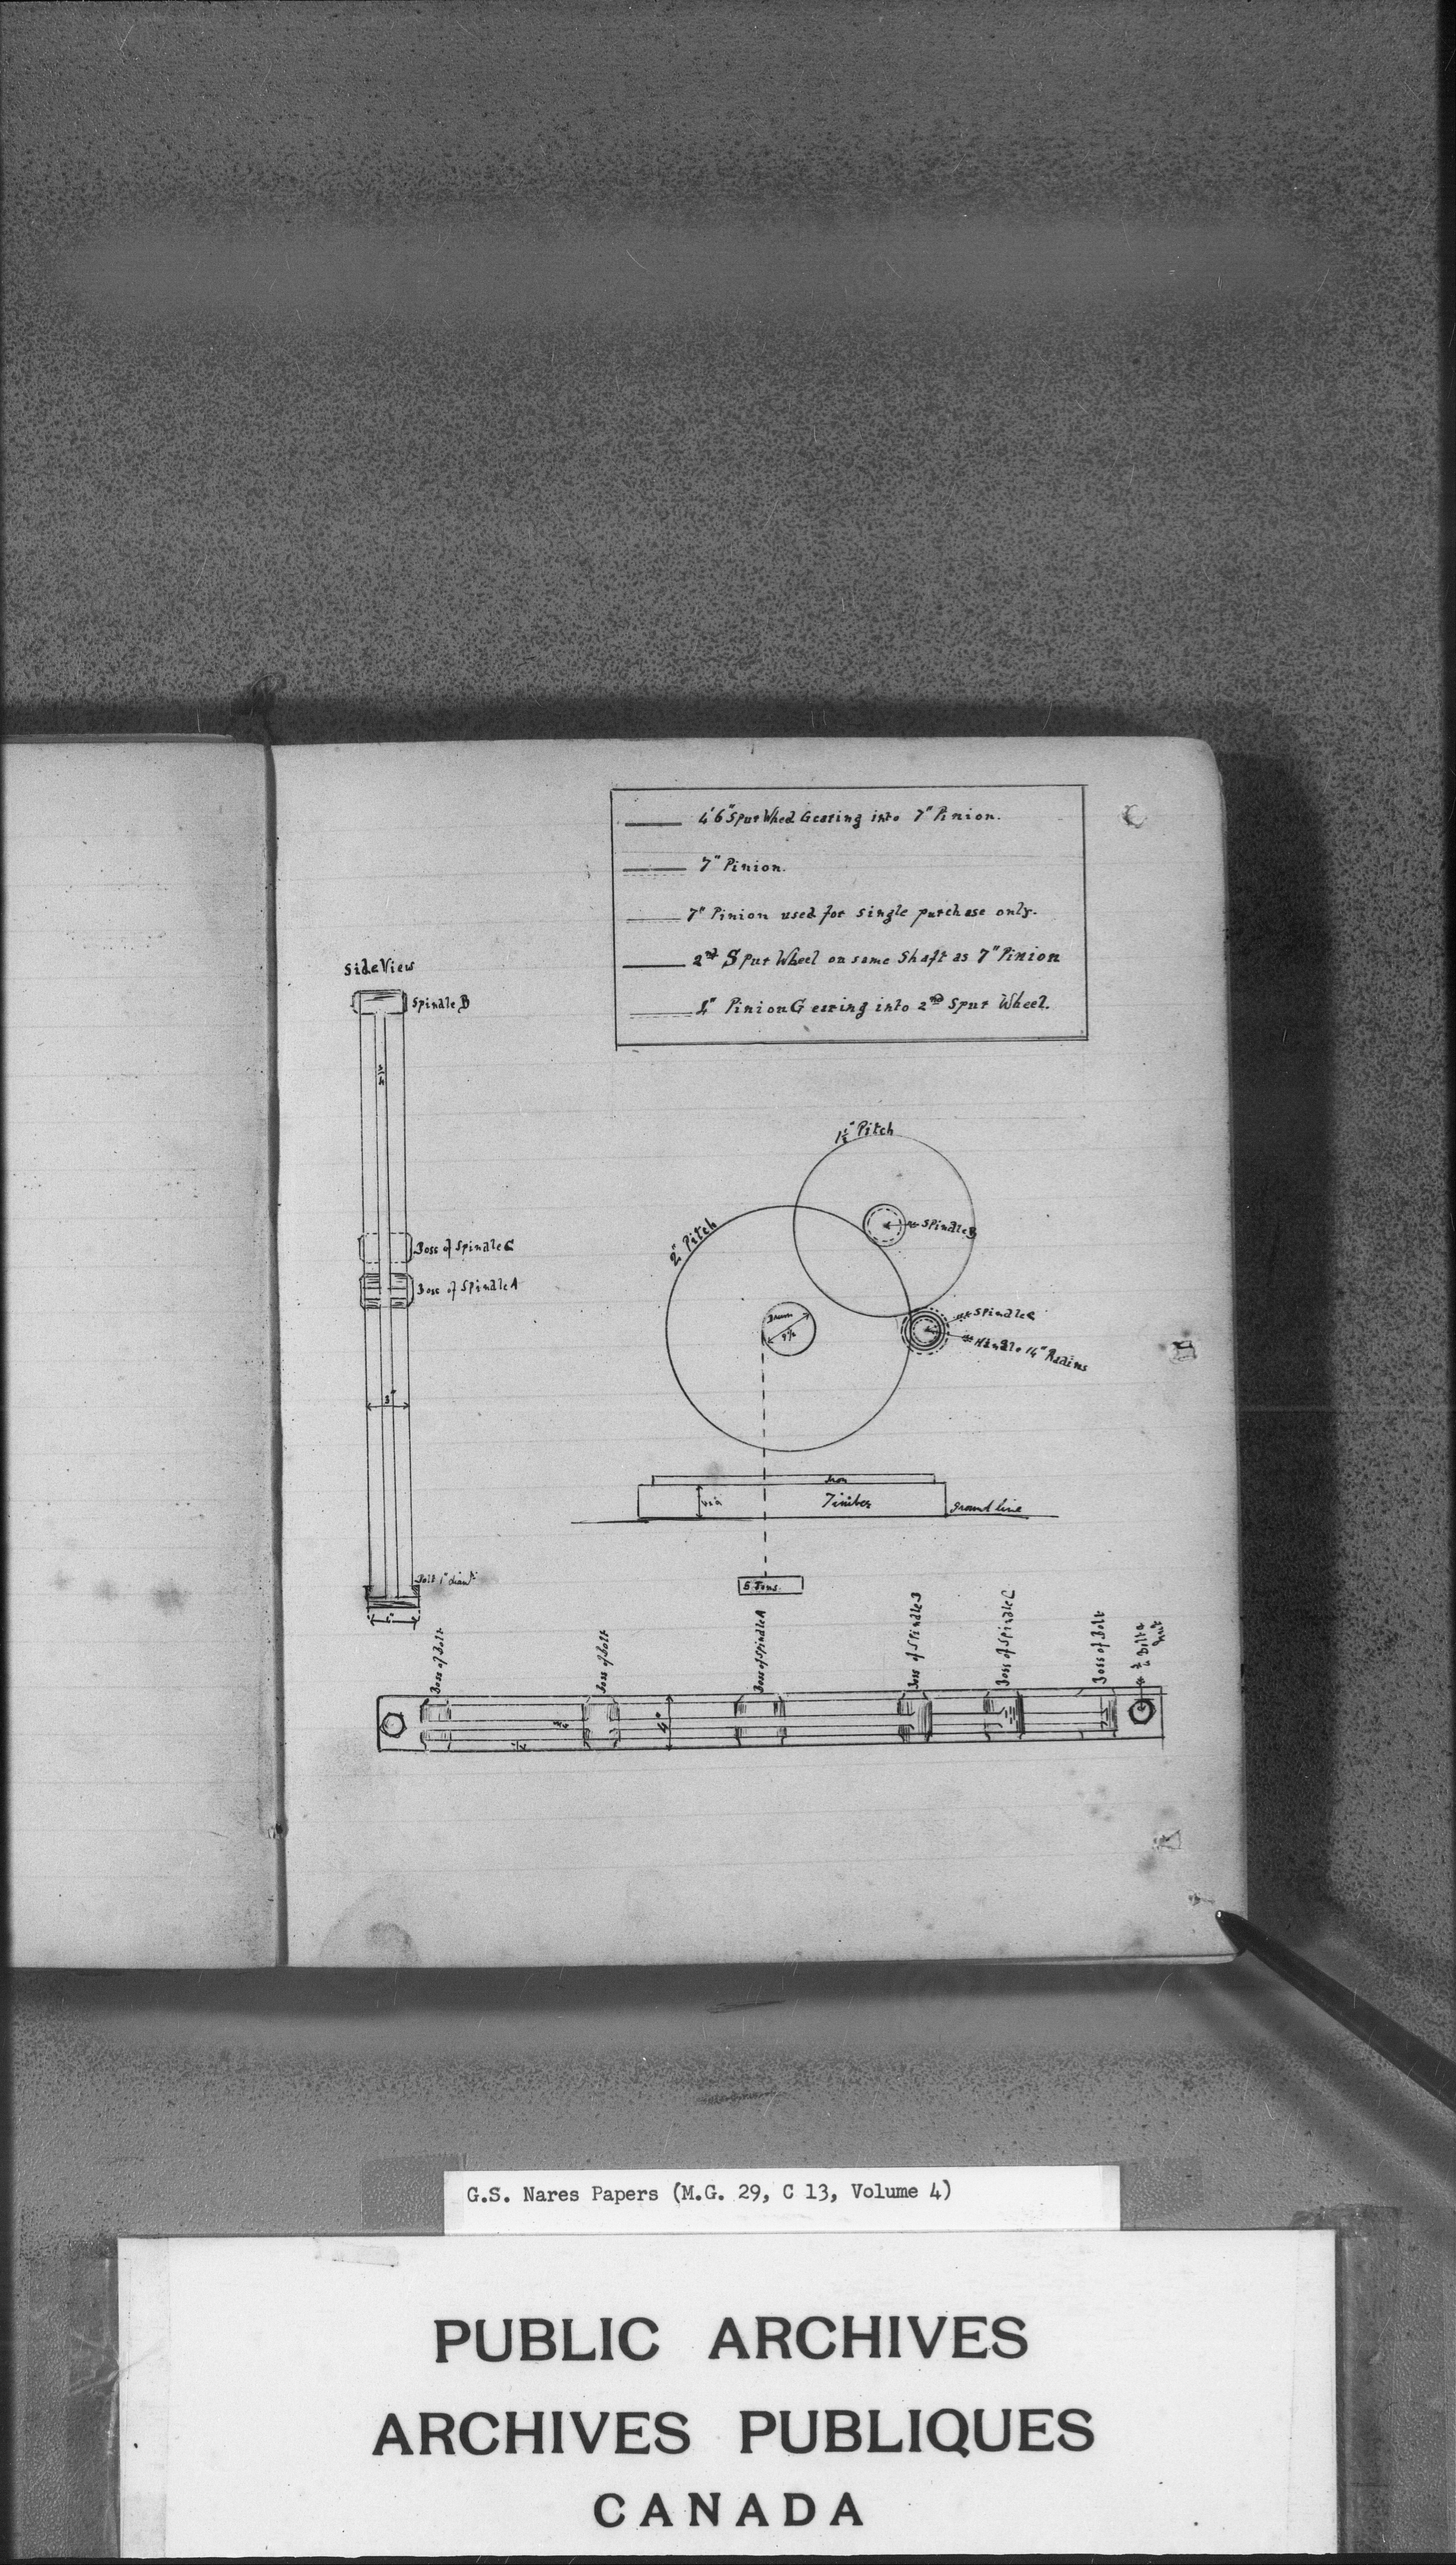 4'6" Spur Wheel Gearing into 7" Pinion.
7" Pinion.
7" Pinion used for single purchase only.
2nd Spur Wheel on same Shaft as 7" Pinion
Pinion Gearing into 2nd Spur Wheel.
Side View
Spindle B
Boss of Spindle C
Boss of Spindle A
3"
Bolt 1" diamr
1½" Pitch
2" Pitch
Spindle B
Spindle C
Handle 14" Radius
Drum
Iron
Timber
ground line
5 Tons.
Boss of Bolt
Boss of Bolt
Boss of Spindle A
Boss of Spindle B
Boss of Spindle C
Boss of Bolt
4"
G.S. Nares Papers (M.G. 29, C 13, Volume 4)
PUBLIC ARCHIVES
ARCHIVES PUBLIQUES
CANADA